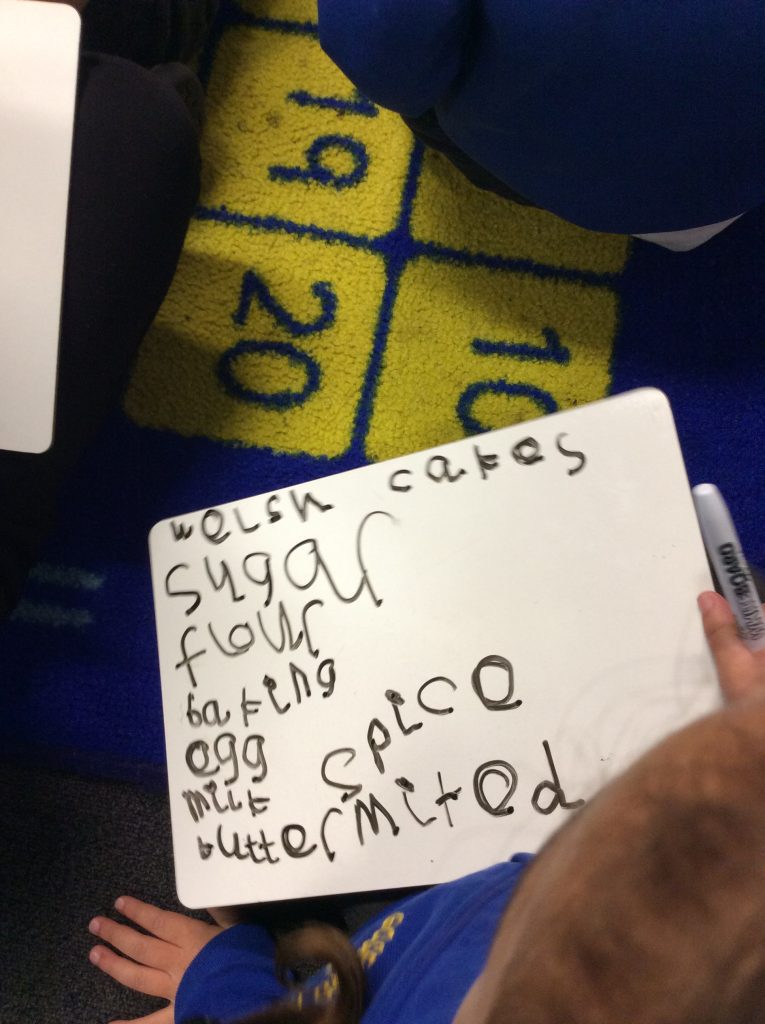 19
20
10
welsh cakes
sugar
flour
baking
egg
spice
milk
butter mixed
BOARD